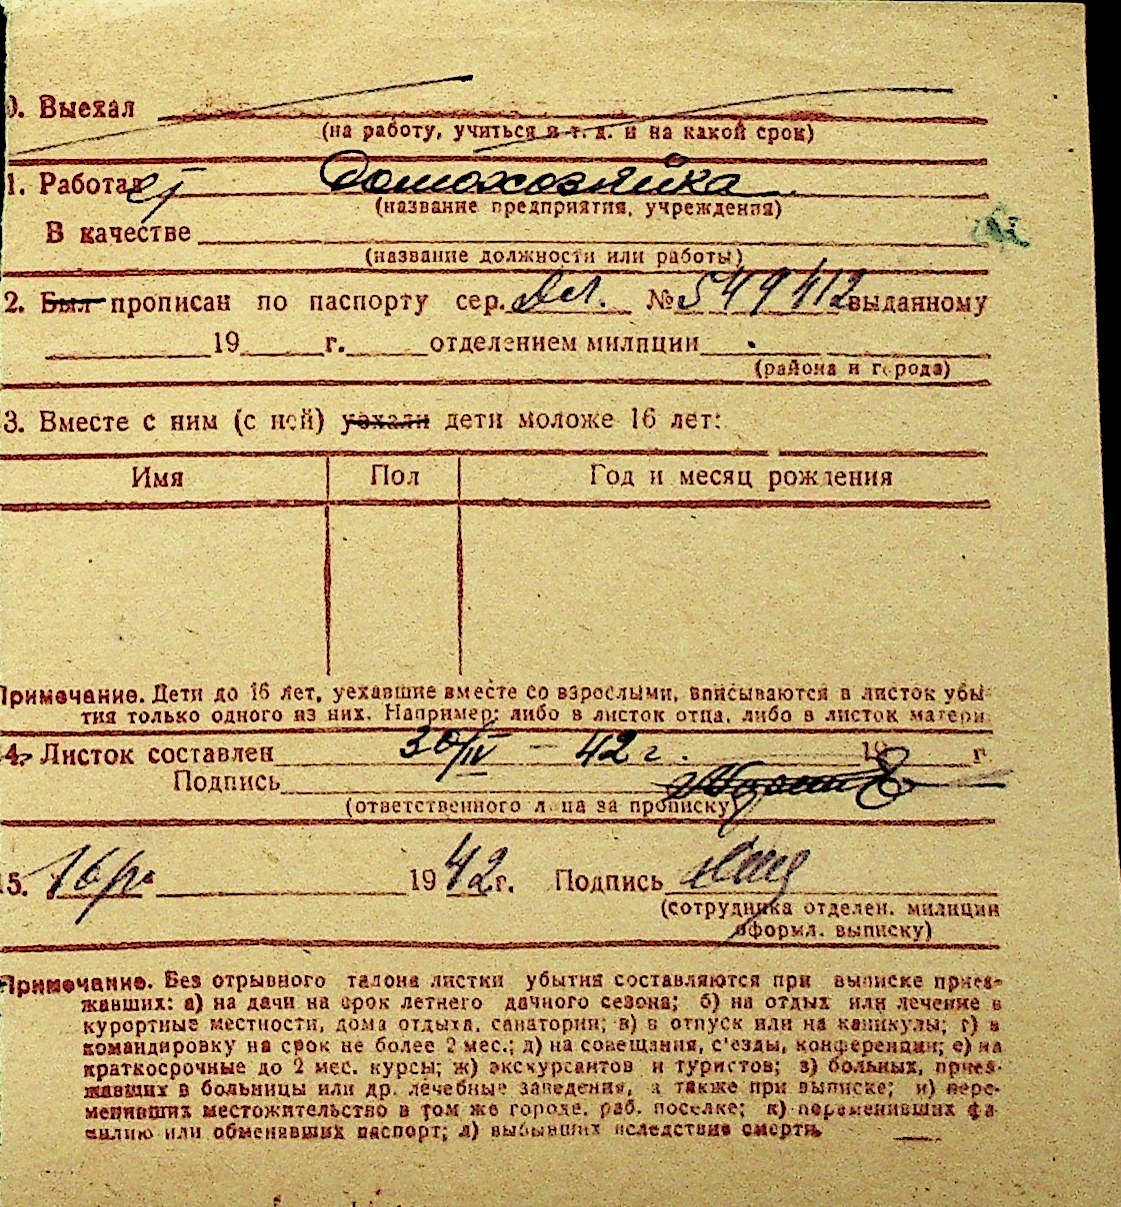 0. Выехал
(на работу, учиться и т. д. и на какой срок)
1. Работает Домохозяйка
(название предприятия, учреждения)
В качестве
(название должности или работы)
2. Был прописан по паспорту сер. № 549112 выданному
19 г. отделением милиции
(района и города)
3. Вместе с ним (с ней) уехали дети моложе 16 лет:
Имя Пол Год и месяц рождения
Примечание. Дети до 16 лет, уехавшие вместе со взрослыми, вписываются в листок убы-
тия только одного из них. Например: либо в листок отца, либо в листок матери
4. Листок составлен 30/IV - 42 г. 19 г
Подпись
(ответственного лица за прописку)
15. 19 42 г. Подпись
(сотрудника отделен. милиции
оформл. выписку)
Примечание. Без отрывного талона листки убытия составляются при выписке приез-
жавших: а) на дачи на срок летнего дачного сезона; б) на отдых или лечение в
курортные местности, дома отдыха, санатории; в) в отпуск или на каникулы; г) в
командировку на срок не более 2 мес.; д) на совещания, с'езды, конференции; е) на
краткосрочные до 2 мес. курсы; ж) экскурсантов и туристов; з) больных, приез-
жавших в больницы или др. лечебные заведения, а также при выписке; и) пере-
менивших местожительство в том же городе, раб. поселке; к) переменивших фа-
милию или обменявших паспорт; л) выбывших вследствие смерти.